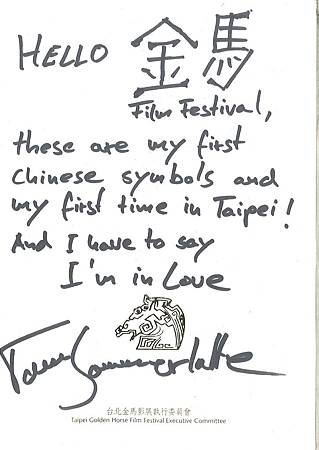 HELLO 金馬
Film Festival,
these are my first
Chinese symbols and
my first time in Taipei!
And I have to say
I'm in Love
Tom Sommerlatte
台北金馬影展執行委員會
Taipei Golden Horse Film Festival Executive Committee